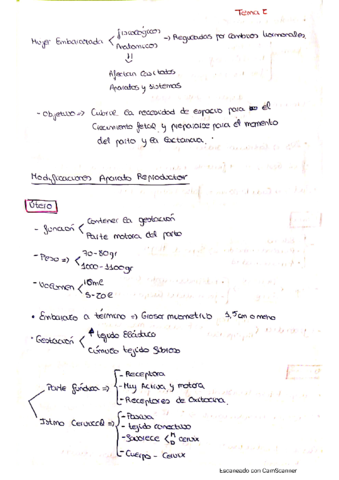 Tema I
Mujer Embarazada < fisiológicos
Anatómicos => Regulados por cambios hormonales
⇓
Afectan a todos
Aparatos y sistemas
- Objetivo => Cubrir la necesidad de espacio para el
Crecimiento fetal y prepararse para el momento
del parto y la lactancia.
Modificaciones Aparato Reproductor
Útero
- función < Contener la gestación
Parte motora del parto
- Peso => < 70-80gr
1000-1100gr
- Volumen < 10ml
5-20l
• Embarazo a término => Grosor miometrio 1,5cm o menos
- Gestación < ↑ tejido Elástico
Cúmulo tejido fibroso
Parte fúndica => - Receptora
- Muy Activa y motora
- Receptores de Oxitocina
Istmo Cervical => - Pasiva
- tejido conectivo
- cervix
- Cuerpo - Cervix
Escaneado con CamScanner